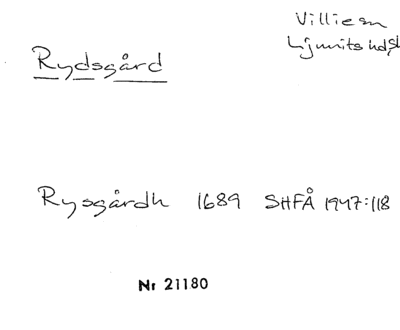 Rydsgård
Villie sn
Ljunits hd
Rysgårdh 1689 SHFÅ 1947:118
Nr 21180